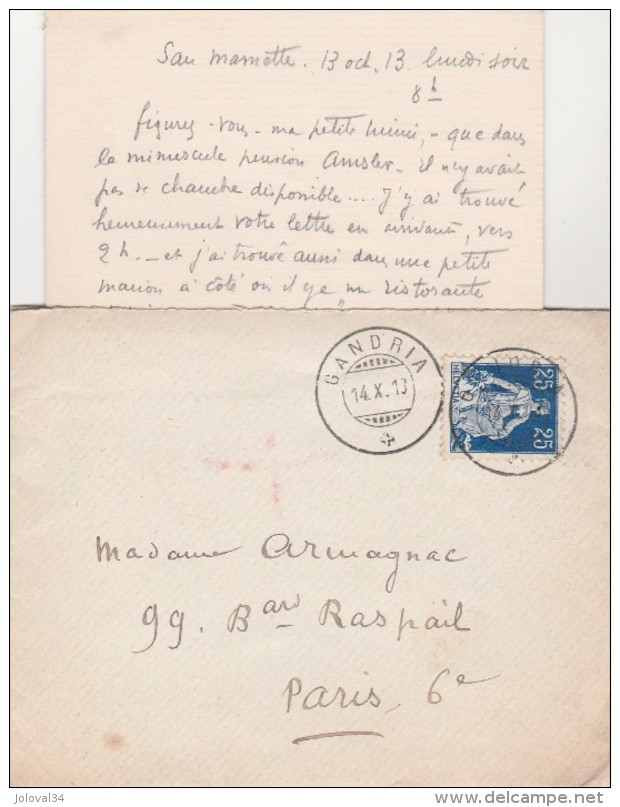 San Mamette. 13 oct. 13 lundi soir
8 h
figurez-vous - ma petite Mimi, - que dans
la minuscule pension Amsler - il n'y avait
pas de chambre disponible .... J'y ai trouvé
heureusement votre lettre en arrivant, vers
2 h. - et j'ai trouvé aussi dans une petite
maison à côté où il y a un "ristorante
GANDRIA
14.X.13
HELVETIA
25
25
Madame Armagnac
99. Bard Raspail
Paris, 6e
joloval34
www.delcampe.net